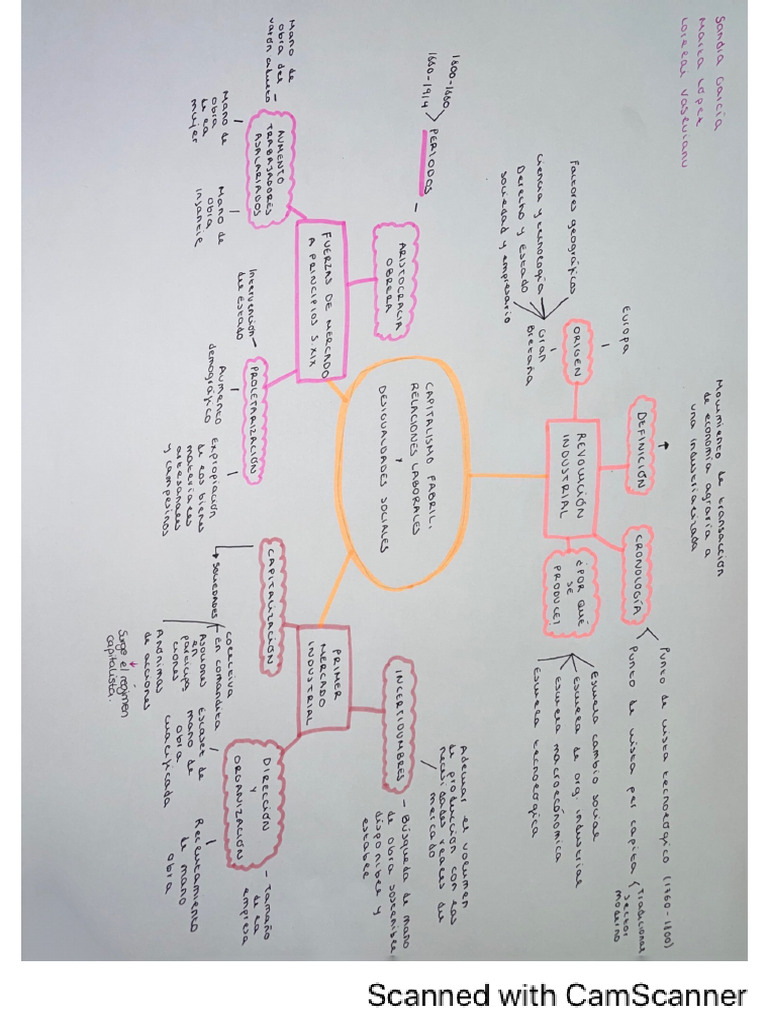 Sandra García
Marta López
Movimiento de transacción
de economía agraria a
una industrializada
DEFINICIÓN
Europa
ORIGEN
Gran
Bretaña
Factores geográficos
Ciencia y tecnología
Derecho y Estado
Sociedad y empresario
REVOLUCIÓN
INDUSTRIAL
CRONOLOGÍA
Punto de vista tecnológico (1760-1800)
Punto de vista per capita
Tradicional
Sector
moderno
¿POR QUÉ
SE
PRODUCE?
Escuela cambio social
Escuela de org. industrial
Escuela macroeconómica
Escuela tecnológica
CAPITALISMO FABRIL,
RELACIONES LABORALES
Y
DESIGUALDADES SOCIALES
FUERZAS DE MERCADO
A PRINCIPIOS S.XIX
ARISTOCRACIA
OBRERA
PERIODOS
1800-1880
1880-1914
AUMENTO
TRABAJADORES
ASALARIADOS
Mano de
obra del
varón adulto
Mano de
obra
de la
mujer
Mano de
obra
infantil
PROLETARIZACIÓN
Intervención
del Estado
Aumento
demográfico
Expropiación
de los bienes
materiales
artesanales
y campesinos
PRIMER
MERCADO
INDUSTRIAL
INCERTIDUMBRES
Adecuar el volumen
de producción con las
necesidades reales del
mercado
Búsqueda de mano
de obra sostenible
disponible y
estable
CAPITALIZACIÓN
SOCIEDADES
colectiva
En comandita
en
participa
ciones
Anónimas
de acciones
Surge el régimen
capitalista.
DIRECCIÓN
Y
ORGANIZACIÓN
Tamaño
de la
empresa
mano de
obra
cualificada
Reclutamiento
de mano
obra
Scanned with CamScanner